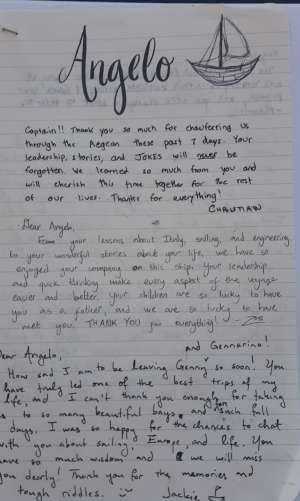 Angelo
Captain!! Thank you so much for chauffering us
through the Aegean these past 7 days. Your
leadership, stories, and JOKES will never be
forgotten. We learned so much from you and
will cherish this time together for the rest
of our lives. Thanks for everything!
CHRISTIAN
Dear Angelo,
From your lessons about Italy, sailing, and engineering
to your wonderful stories about your life, we have so
enjoyed your company on this ship. Your leadership
and quick thinking make every aspect of the voyage
easier and better. Your children are so lucky to have
you as a father, and we are so lucky to have
meet you. THANK YOU for everything!
Dear Angelo, and Gennarino!
How sad I am to be leaving so soon! You
have truly led one of the best trips of my
life, and I can't thank you enough for taking
us to so many beautiful bays and such full
days. I was so happy for the chances to chat
with you about sailing, Europe, and life. You
have so much wisdom, and we will miss
you dearly! Thank you for the memories and
tough riddles. :)
Jackie